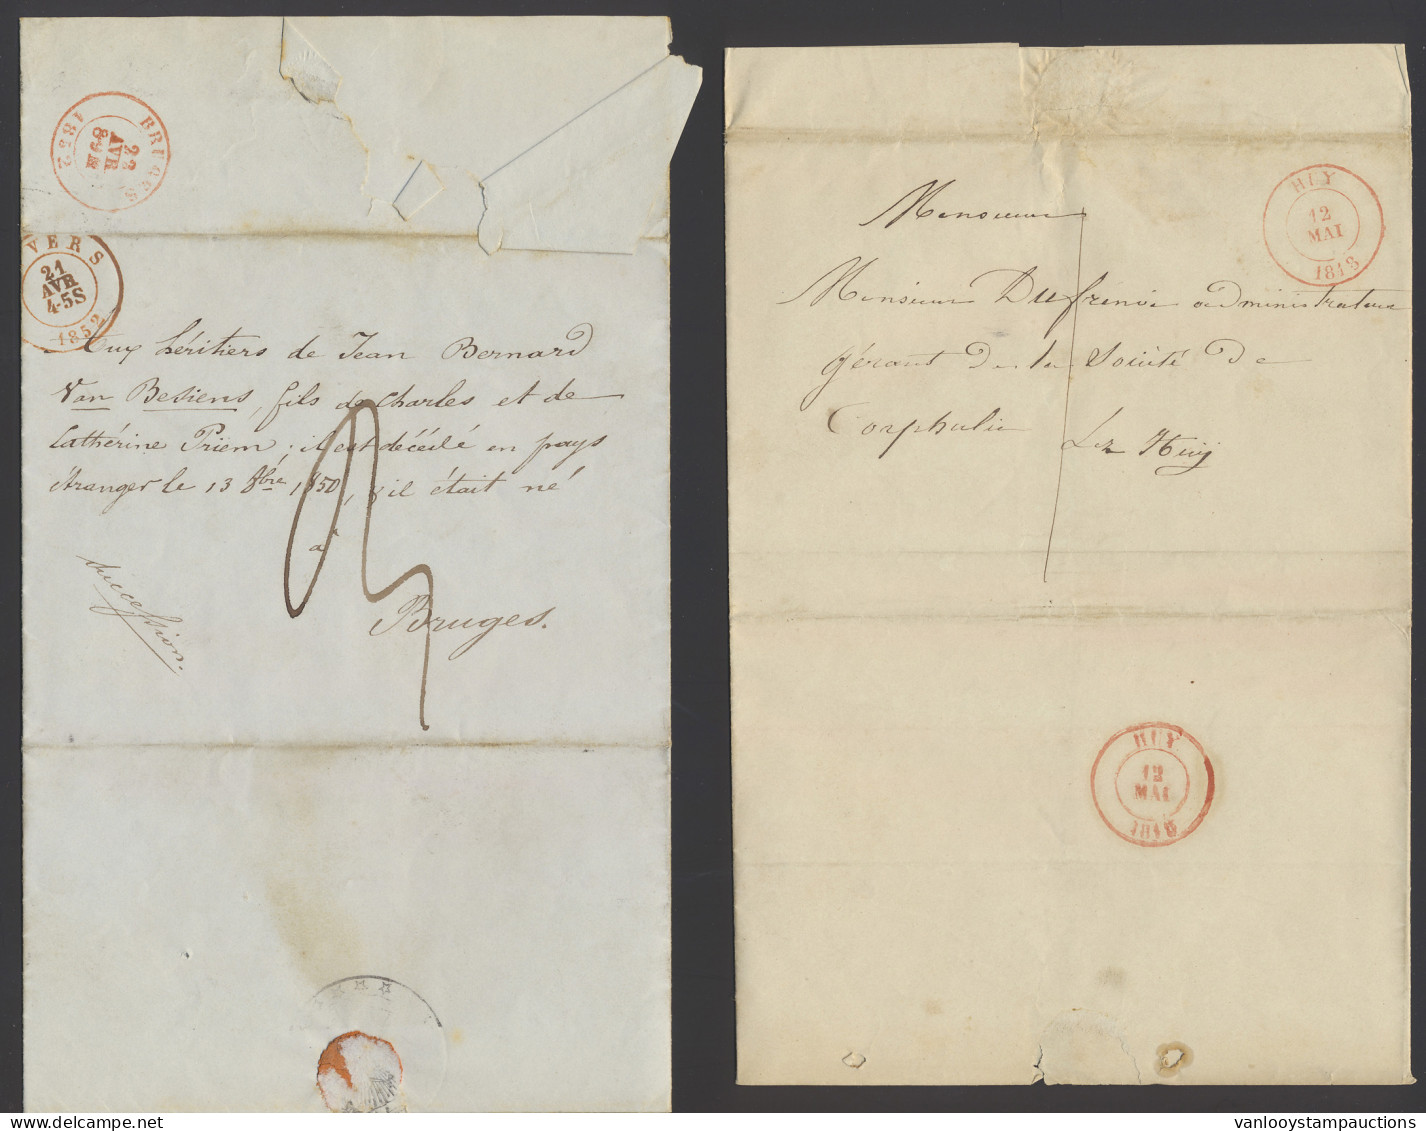 BRUGES
22
AVR
8-9M
1852
VERS
21
AVR
4-5S
1852
Aux héritiers de Jean Bernard
Van Besiens, fils de Charles et de
Cathérine Priem ; il est décédé en pays
étranger le 13 8bre 1850, & il était né
à
Bruges.
succession.
3
HUY
12
MAI
1848
Monsieur
Monsieur Dufrénoi administrateur
gérant de la Société de
Corphalie
Lez Huy
HUY
12
MAI
1848
vanlooystampauctions